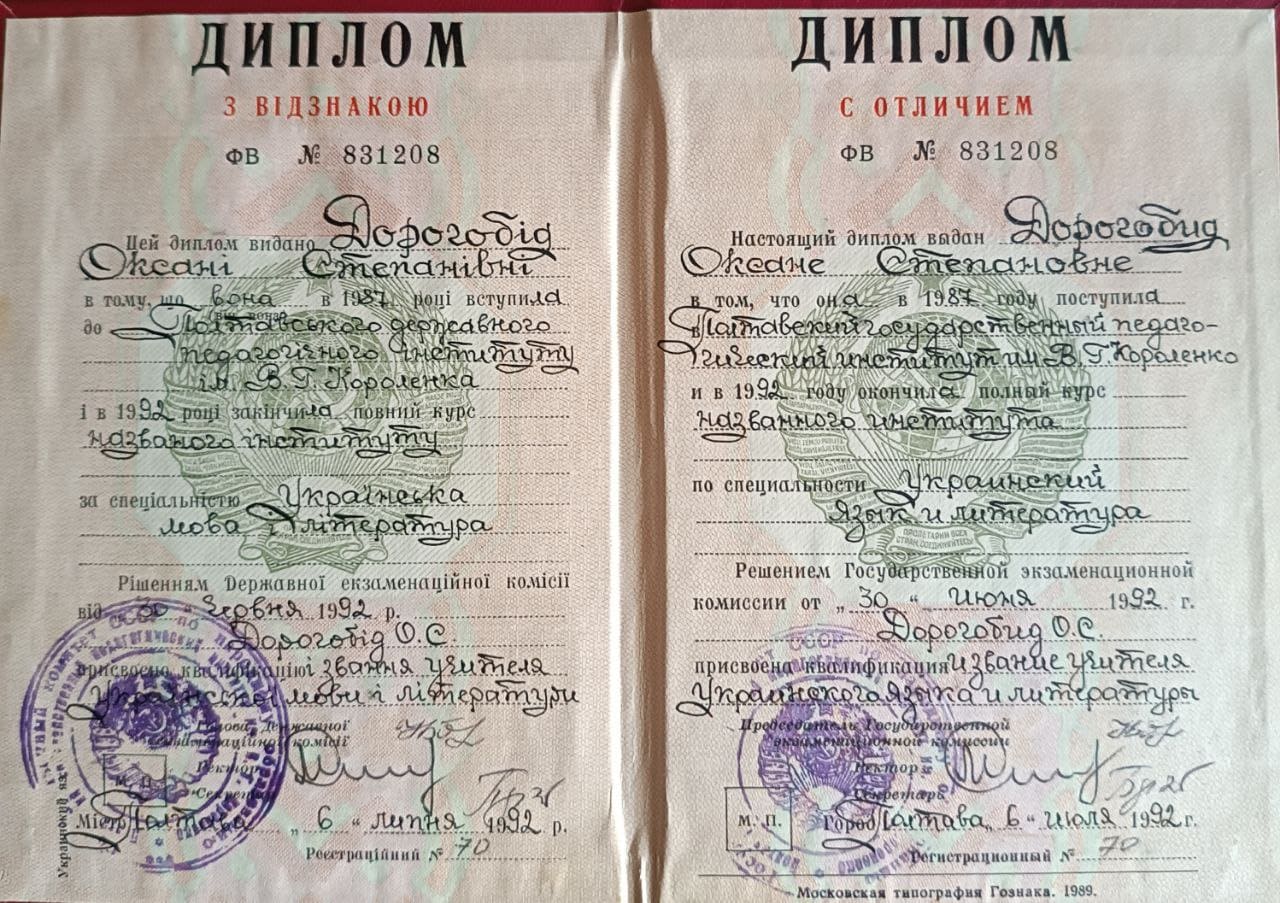 ДИПЛОМ
З ВІДЗНАКОЮ
ФВ № 831208
Цей диплом видано Дорогобід
Оксані Степанівні
в тому, що вона в 1987 році вступила
(він, вона)
до Полтавського державного
педагогічного інституту
ім. В.Г. Короленка
і в 1992 році закінчила повний курс
названого інституту
за спеціальністю Українська
мова і література
Рішенням Державної екзаменаційної комісії
від „30“ червня 1992 р.
Дорогобід О.С.
присвоєно кваліфікацію і звання учителя
Української мови і літератури
Голова Державної
екзаменаційної комісії
Ректор
Секретар
М. П.
Місто Полтава „6“ липня 1992 р.
Реєстраційний № 70
ДИПЛОМ
С ОТЛИЧИЕМ
ФВ № 831208
Настоящий диплом выдан Дорогобид
Оксане Степановне
в том, что она в 1987 году поступила
в Полтавский государственный педаго-
гический институт им В.Г. Короленко
и в 1992 году окончила полный курс
названного института
по специальности Украинский
язык и литература
Решением Государственной экзаменационной
комиссии от „30“ июня 1992 г.
Дорогобид О.С.
присвоена квалификация и звание учителя
Украинского языка и литературы
Председатель Государственной
экзаменационной комиссии
Ректор
Секретарь
М. П.
Город Полтава „6“ июля 1992 г.
Регистрационный № 70
Московская типография Гознака. 1989.